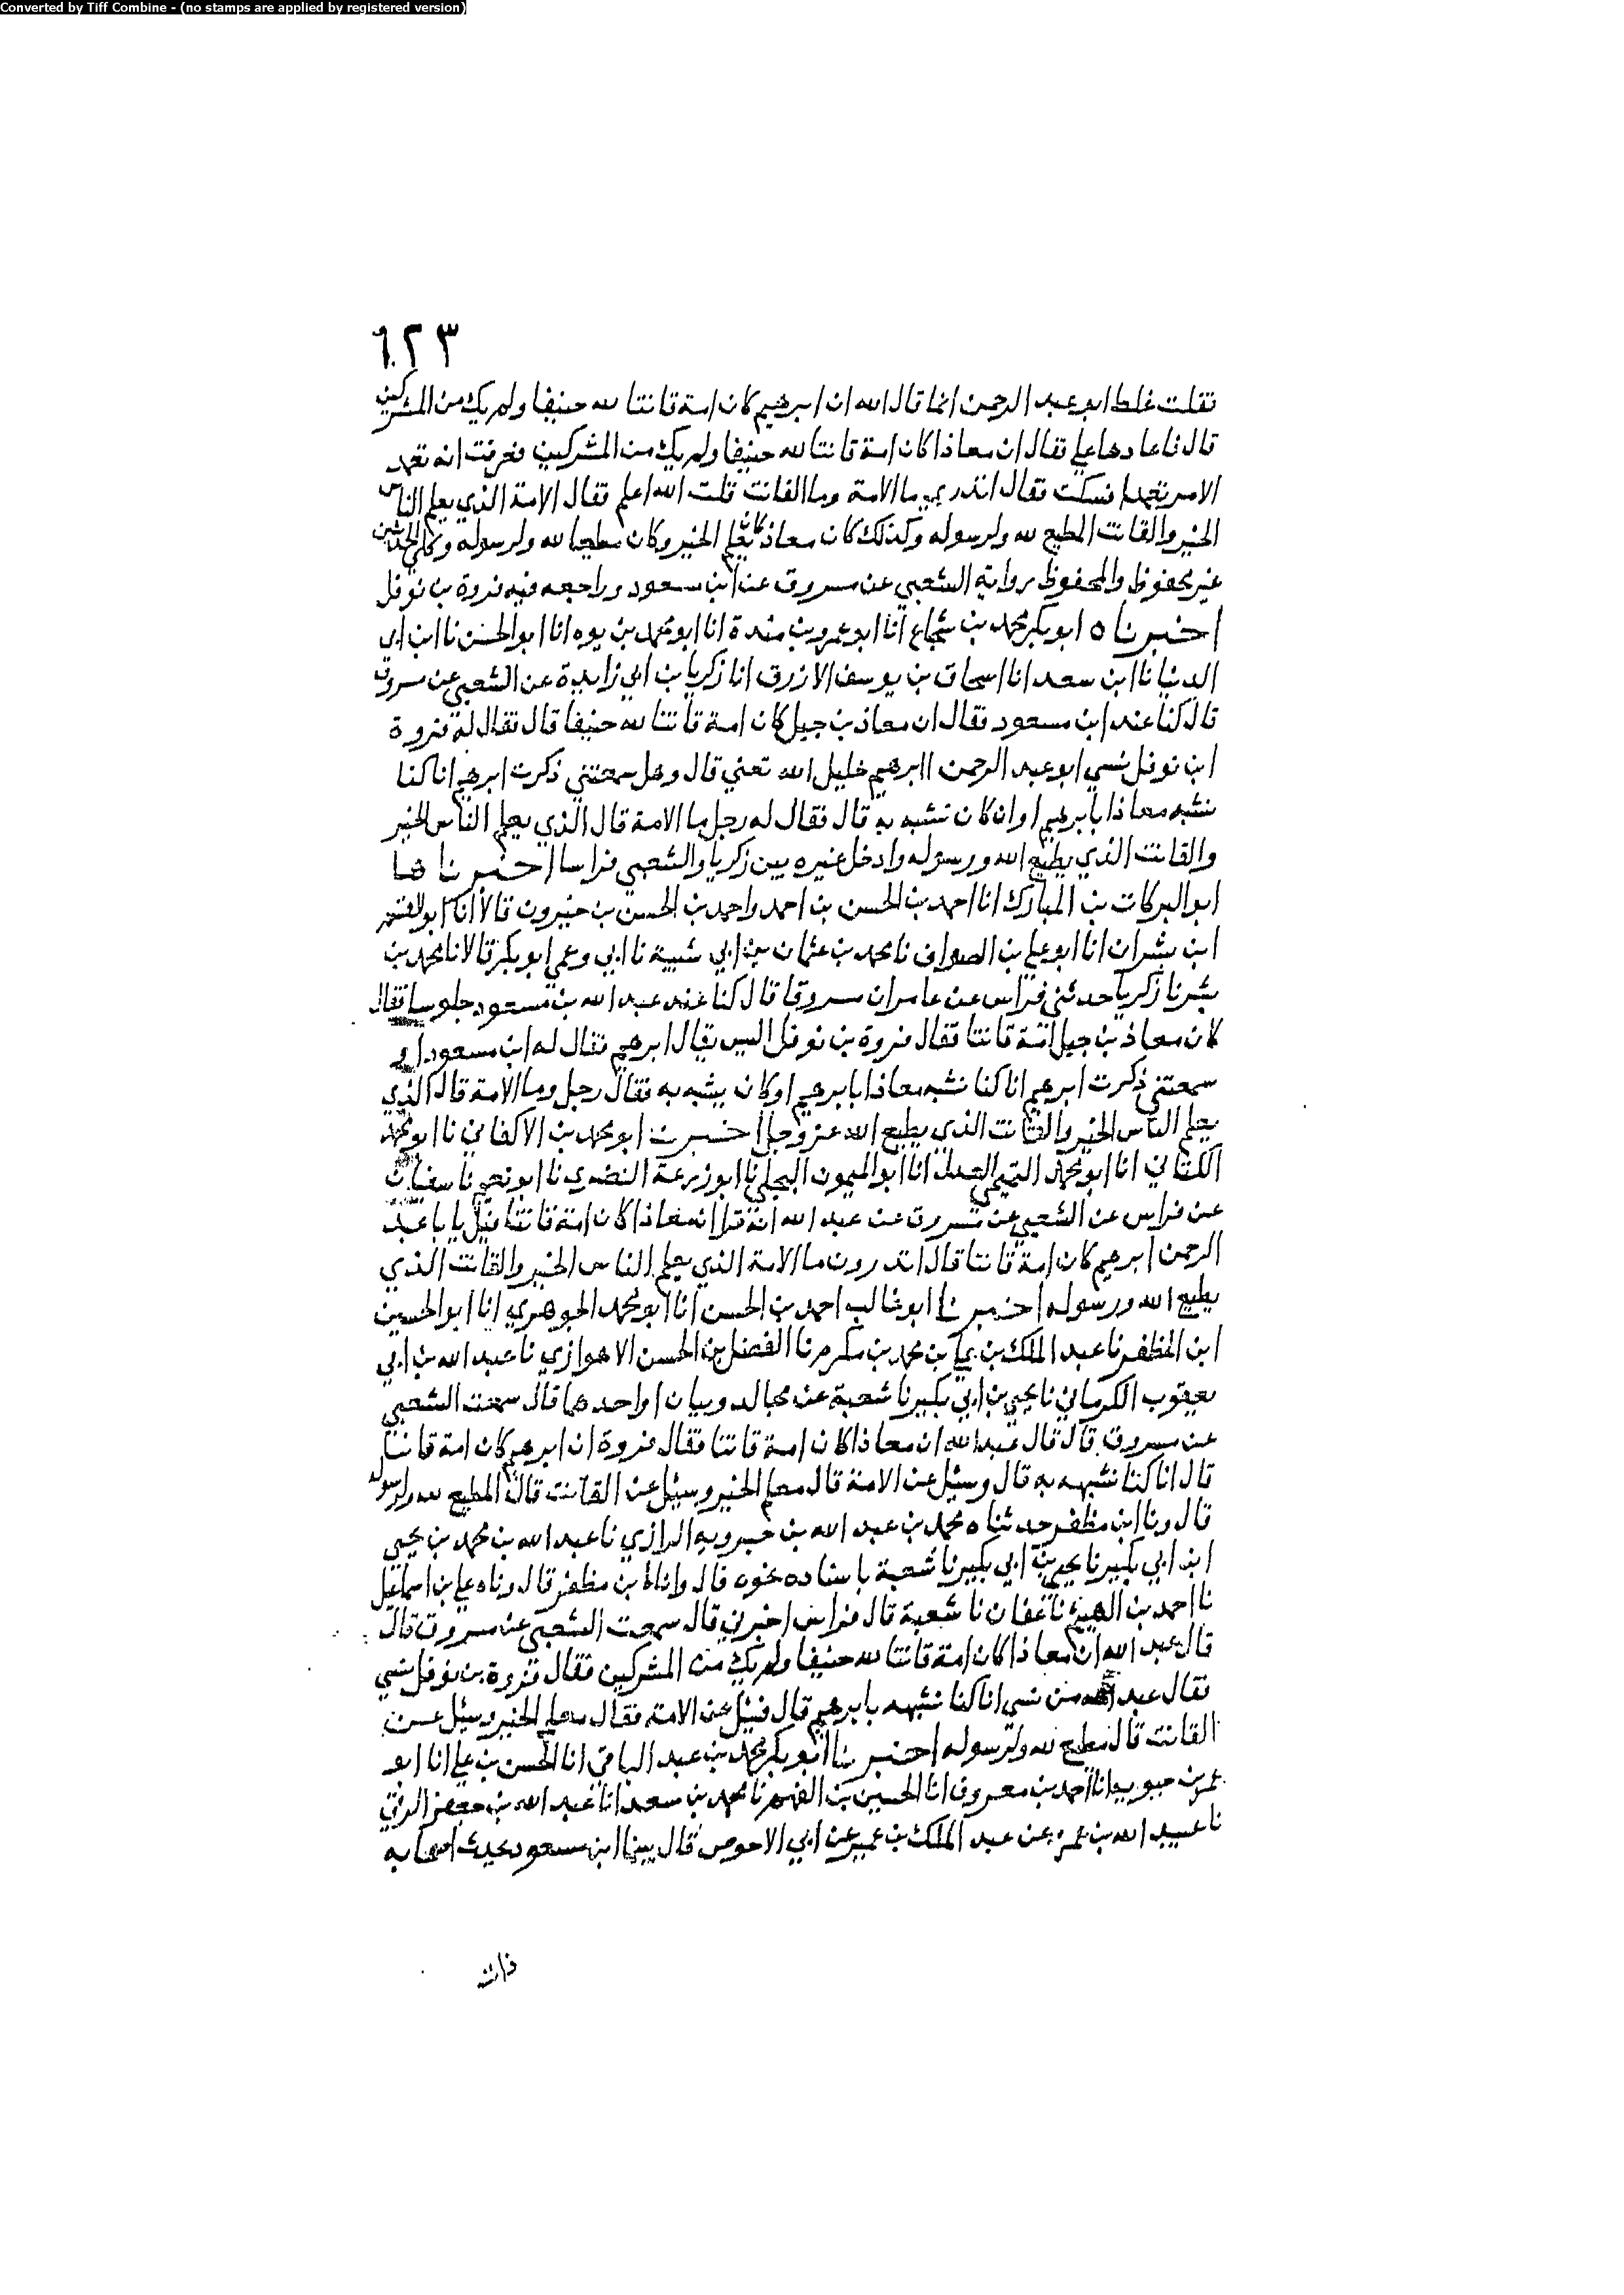 Converted by Tiff Combine - (no stamps are applied by registered version)
٦٢٣
فقلت غلط ابو عبد الرحمن انما قال الله ان ابرهيم كان امة قانتا لله حنيفا ولم يك من المشركين
قال فاعادها علي فقال ان معاذا كان امة قانتا لله حنيفا ولم يك من المشركين فعرفت انه تعمد
الامر تعمدا فسكت فقال اتدري ما الامة وما القانت قلت الله اعلم فقال الامة الذي يعلم الناس
الخير والقانت المطيع لله ولرسوله وكذلك كان معاذ كان يعلم الخير وكان مطيعا لله ولرسوله وكلى الحديثين
غير محفوظ والمحفوظ رواية الشعبي عن مسروق عن ابن مسعود وراجعه فيه فروة بن نوفل
اخبرناه ابو بكر محمد بن شجاع انا ابو عمرو بن مندة انا ابو محمد بن يوه انا ابو الحسن نا ابن ابي
الدنيا نا ابن سعد انا اسحاق بن يوسف الازرق انا زكريا بن ابي زايدة عن الشعبي عن مسروق
قال كنا عند ابن مسعود فقال ان معاذ بن جبل كان امة قانتا لله حنيفا قال فقال له فروة
ابن نوفل نسي ابو عبد الرحمن اابرهيم خليل الله تعني قال وهل سمعتني ذكرت ابرهيم انا كنا
نشبه معاذا بابرهيم او ان كان نشبه به قال فقال له رجل ما الامة قال الذي يعلم الناس الخير
والقانت الذي يطيع الله ورسوله وادخل غيره بين زكريا والشعبي فراسا اخبرناها
ابو البركات بن المبارك انا احمد بن الحسن بن احمد واحمد بن الحسن بن خيرون قالا انا ابو القاسم
ابن بشران انا ابو علي بن الصواف نا محمد بن عثمان بن ابي شيبة نا ابي وعمي ابو بكر قالا نا محمد بن
بشر نا زكريا حدثني فراس عن عامر ان مسروقا قال كنا عند عبد الله بن مسعود جلوسا فقال
كان معاذ بن جبل امة قانتا فقال فروة بن نوفل اليس يقال ابرهيم فقال له ابن مسعود او
سمعتني ذكرت ابرهيم انا كنا نشبه معاذا بابرهيم او كان يشبه به فقال رجل وما الامة قال الذي
يعلم الناس الخير والقانت الذي يطيع الله عز وجل اخبرنا ابو محمد بن الاكفاني نا ابو محمد
الكتاني انا ابو محمد التميمي العدل انا ابو الميمون البجلي نا ابو زرعة النضري نا ابو نعيم نا سفيان
عن فراس عن الشعبي عن مسروق عن عبد الله انه قرا ان معاذا كان امة قانتا فقيل يا با عبد
الرحمن ابرهيم كان امة قانتا قال اتدرون ما الامة الذي يعلم الناس الخير والقانت الذي
يطيع الله ورسوله اخبرنا ابو غالب احمد بن الحسن انا ابو محمد الجوهري انا ابو الحسين
ابن المظفر نا عبد الملك بن يحيى بن محمد بن مكرم نا الفضل بن الحسن الاهوازي نا عبد الله بن ابي
يعقوب الكرماني نا يحيى بن ابي بكير نا شعبة عن مجالد وبيان او احدهما قال سمعت الشعبي
عن مسروق قال قال عبد الله ان معاذا كان امة قانتا فقال فروة ان ابرهيم كان امة قانتا
قال انا كنا نشبهه به قال وسئل عن الامة قال معلم الخير وسئل عن القانت قال المطيع لله ولرسوله
قال ونا ابن مظفر حدثناه محمد بن عبد الله بن حبرويه الرازي نا عبد الله بن محمد بن يحيى
ابن ابي بكير نا يحيى بن ابي بكير نا شعبة باسناده نحوه قال وانا ابن مظفر قال وناه علي بن اسماعيل
نا احمد بن الهيثم نا عفان نا شعبة قال فراس اخبرني قال سمعت الشعبي عن مسروق قال
قال عبد الله ان معاذا كان امة قانتا لله حنيفا ولم يك من المشركين فقال فروة بن نوفل نسي
فقال عبد الله من نسي انا كنا نشبهه بابرهيم قال فسئل عن الامة فقال معلم الخير وسئل عن
القانت قال مطيع لله ولرسوله اخبرنا ابو بكر محمد بن عبد الباقي انا الحسن بن علي انا ابو
عمر بن حيويه انا احمد بن معروف انا الحسين بن الفهم نا محمد بن سعد انا عبد الله بن جعفر الرقي
نا عبيد الله بن عمرو عن عبد الملك بن عمير عن ابي الاحوص قال بينما ابن مسعود يحدث اصحابه
ذات